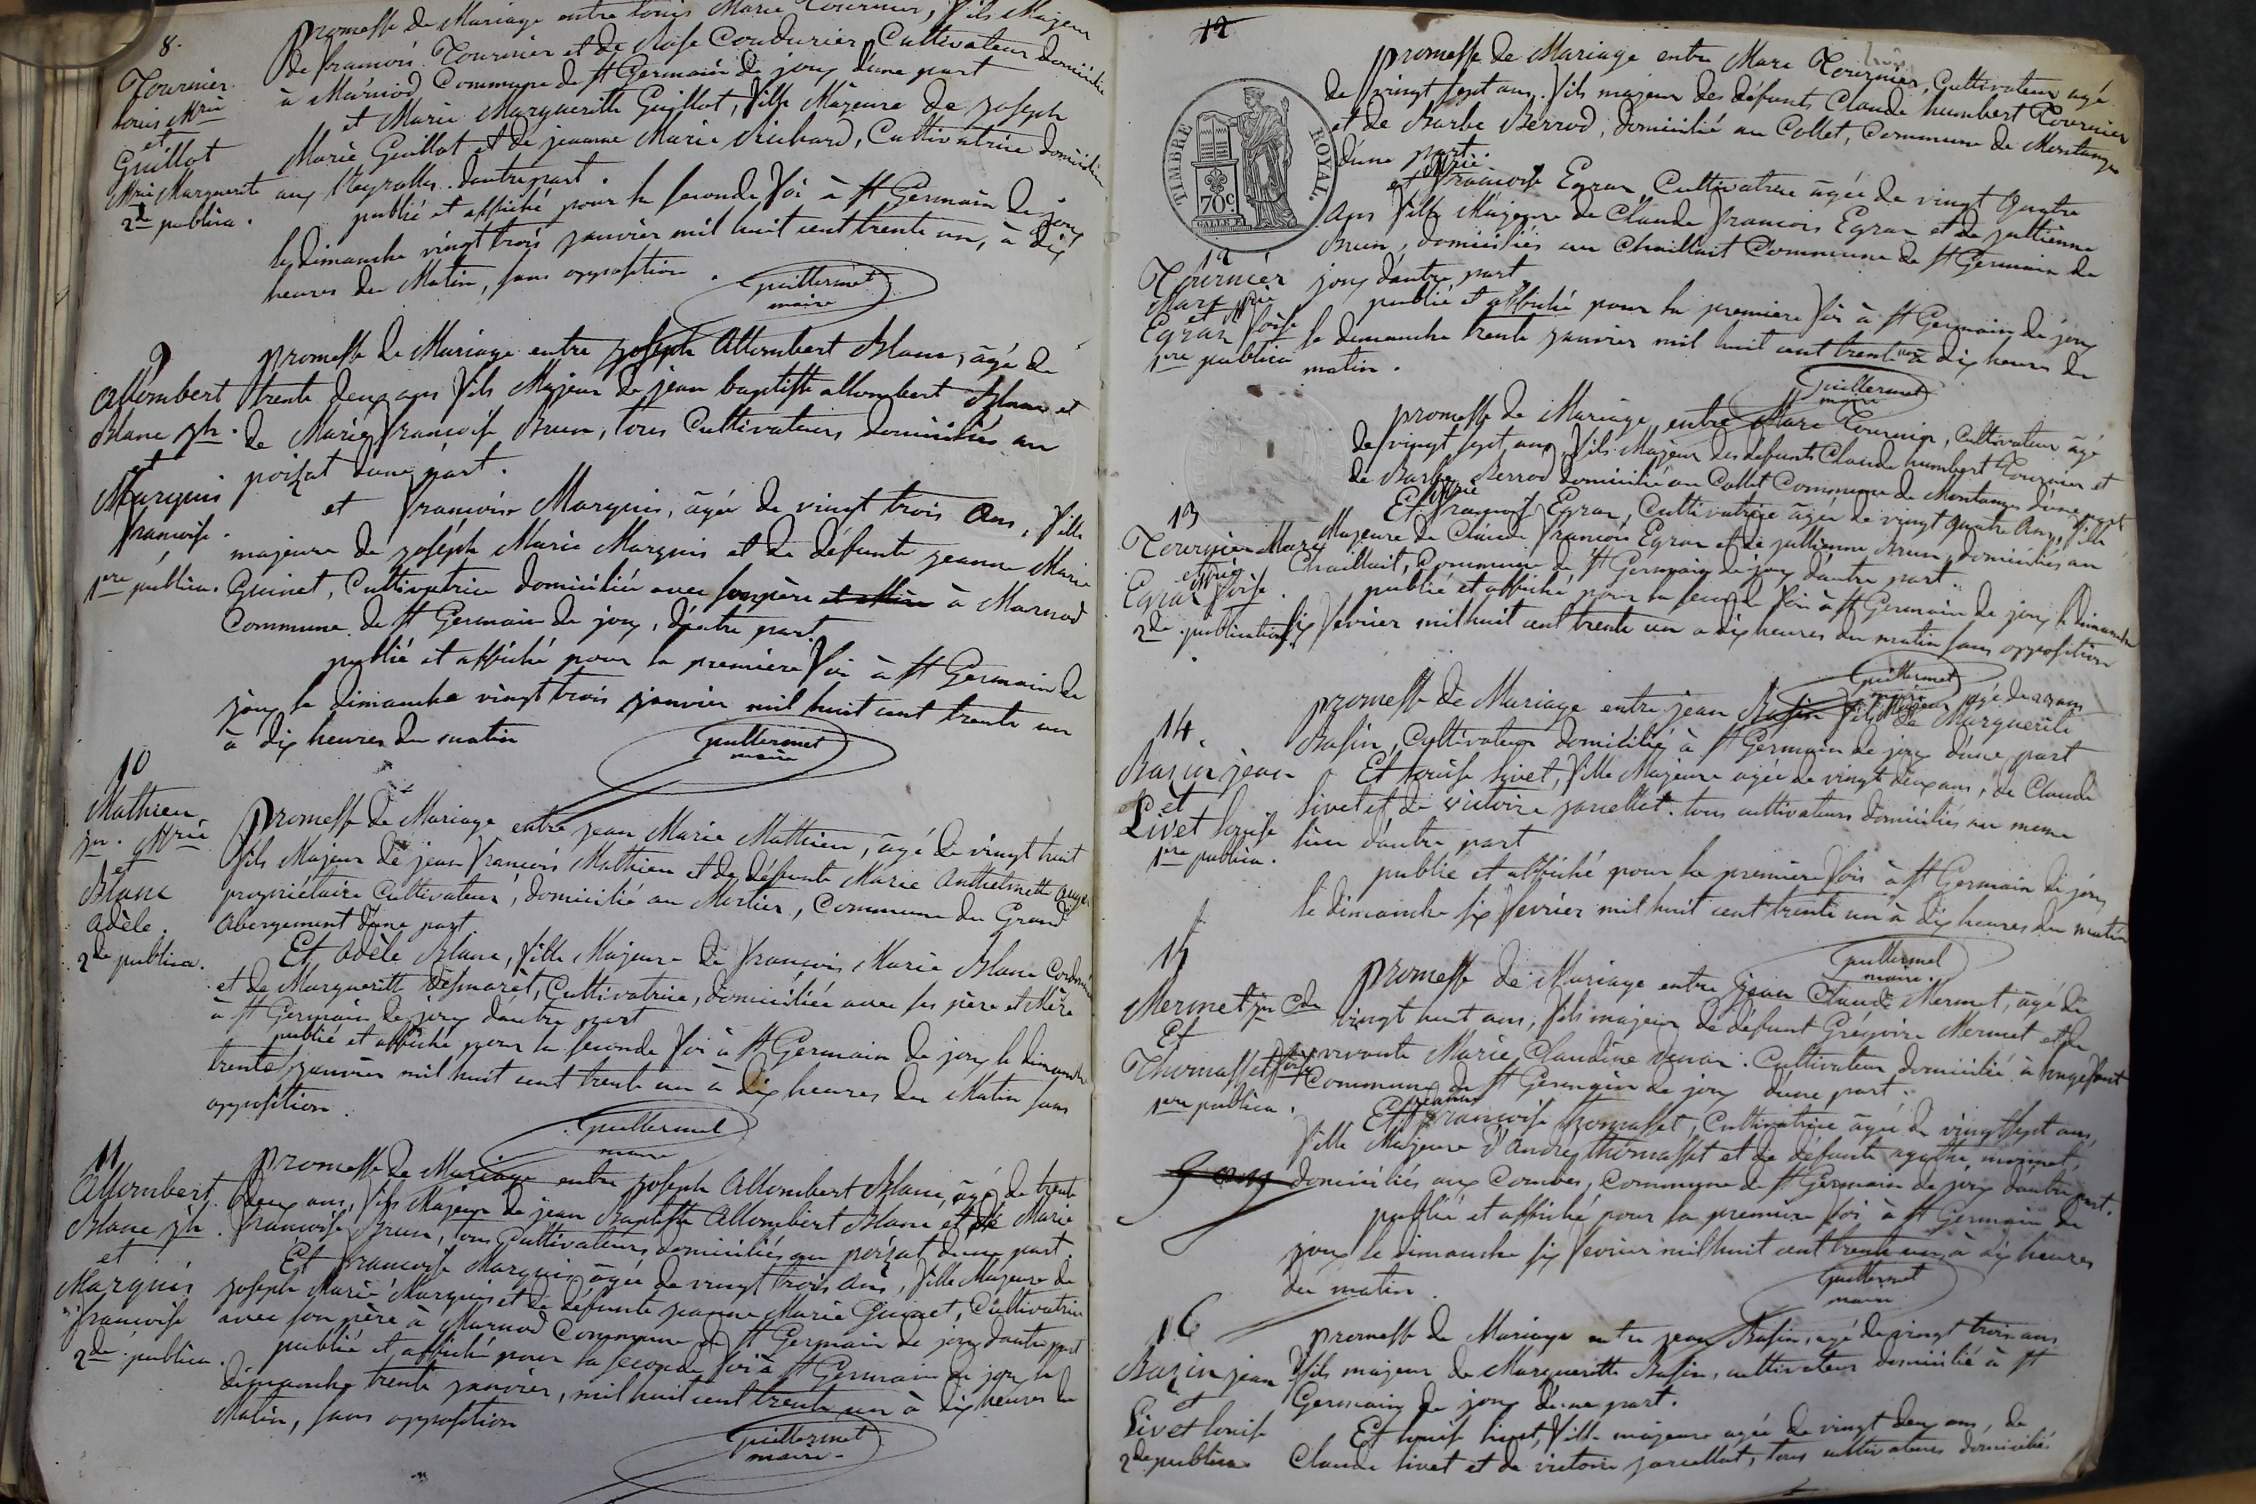 8.
Tournier
louis Mrie
et
Guillot
Mrie Marguerite
2de publica.
promesse de Mariage entre louis Marie Tournier, fils Majeur
de francois Tournier et de Rose Coudurier, Cultivateur domicilié
à Marnod Commune de St Germain de joux d'une part
et Marie Margueritte Guillot, fille Majeure de joseph
Marie Guillot et de jeanne Marie Richard, Cultivatrice domiciliée
aux Neyrolles d'autre part.
publié et affiché pour la seconde fois à St Germain de joux
le dimanche vingt trois janvier mil huit cent trente un, à dix
heures du Matin, sans opposition.
guillermet
maire
9
Allombert
Blanc jh.
et
Marquis
francoise.
1re publica.
promesse de Mariage entre joseph Allombert Blanc, âgé de
trente deux ans fils Majeur de jean baptiste allombert Blanc et
de Marie francoise Brun, tous Cultivateurs domiciliés au
poizat d'une part.
et francoise Marquis, âgée de vingt trois ans, fille
majeure de joseph Marie Marquis et de défunte jeanne Marie
Guinet, Cultivatrice domiciliée avec son père et Mère à Marnod
Commune de St Germain de joux, d'autre part.
publié et affiché pour la première fois à St Germain de
joux le dimanche vingt trois janvier mil huit cent trente un
à dix heures du matin
guillermet
maire
10
Mathieu
jn. Mrie
et
Blanc
adèle.
2de publica.
promesse de Mariage entre jean Marie Mathieu, âgé de vingt huit
fils Majeur de jean francois Mathieu et de défunte Marie Anthelmette
propriétaire Cultivateur, domicilié au Mortier, Commune du Grand
Abergement d'une part
Et adèle Blanc, fille Majeure de francois Marie Blanc Cordonnier
et de Marguerite Desmaret, Cultivatrice, domiciliée avec ses père et Mère
à St Germain de joux d'autre part
publié et affiché pour la seconde fois à St Germain de joux le dimanche
trente janvier mil huit cent trente un à dix heures du Matin sans
opposition.
guillermet
maire
11
Allombert
Blanc jh.
et
Marquis
francoise
2de publica.
promesse de Mariage entre joseph Allombert Blanc, âgé de trente
deux ans, fils Majeur de jean Baptiste Allombert Blanc et de Marie
francoise Brun, tous Cultivateurs domiciliés au poizat d'une part.
Et francoise Marquis âgée de vingt trois ans, fille Majeure de
joseph Marie Marquis et de défunte jeanne Marie Guinet, Cultivatrice
avec son père à Marnod Commune de St Germain de joux d'autre part
publié et affiché pour la seconde fois à St Germain de joux le
dimanche trente janvier, mil huit cent trente un à dix heures du
Matin, sans opposition
guillermet
maire.
12
TIMBRE ROYAL.
70c
12
Tournier
Marc
et Mrie
Egraz foise
1re publica
promesse de Mariage entre Marc Tournier, Cultivateur agé
de vingt sept ans, fils majeur des défunts Claude humbert Tournier
et de Barbe Berrod, domicilié au Collet, Commune de Montanges
d'une part.
Mrie
et francoise Egraz Cultivatrice âgée de vingt quatre
ans fille Majeure de Claude francois Egraz et de jullienne
Brun, domiciliés au Chaillait Commune de St Germain de
joux d'autre part
publié et affiché pour la premiere fois à St Germain de joux
le dimanche trente janvier mil huit cent trente un à dix heures du
matin.
guillermet
maire
13
Tournier Marc
et Mrie
Egraz foise.
2de publication
promesse de Mariage entre Marc Tournier, Cultivateur âgé
de vingt sept ans, fils Majeur des défunts Claude humbert Tournier et
de Barbe Berrod domicilié au Collet Commune de Montanges d'une part
Mrie
Et francoise Egraz, Cultivatrice âgée de vingt quatre ans, fille
Majeure de Claude francois Egraz et de jullienne Brun, domiciliés au
Chaillait, Commune de St Germain de joux d'autre part.
publié et affiché pour la seconde fois à St Germain de joux le dimanche
six fevrier mil huit cent trente un a dix heures du matin sans opposition
guillermet
maire
14
Bazin jean
et
Livet louise
1re publica.
promesse de Mariage entre jean Basin fils Majeur de Marguerite
Basin, Cultivateur domicilié à St Germain de joux d'une part
Et louise livet, fille Majeure agée de vingt deux ans, de Claude
livet et de victoire jarcellat. tous cultivateurs domiciliés au meme
lieu d'autre part
publié et affiché pour la premiere fois à St Germain de joux
le dimanche six fevrier mil huit cent trente un à dix heures du matin
guillermet
maire.
15
Mermet jn Cde
Et
Thomasset foise
1re publica.
promesse de Mariage entre jean Claude Mermet, âgé de
vingt huit ans, fils majeur de défunt Grégoire Mermet et de
vivante Marie Claudine. Cultivateur domicilié à longefant
Commune de St Germain de joux d'une part.
jeanne
Et francoise thomasset, Cultivatrice âgée de vingt sept ans,
fille Majeure d'André thomasset et de défunte agathe moinet,
domiciliés aux Combes, Commune de St Germain de joux d'autre part.
publié et affiché pour la premiere fois à St Germain de
joux le dimanche six fevrier mil huit cent trente un, à dix heures
du matin.
guillermet
maire
16
Bazin jean
et
Livet louise
2de publica
promesse de Mariage entre jean Basin, agé de vingt trois ans
fils majeur de Margueritte Basin, cultivateur domicilié à St
Germain de joux d'une part.
Et louise livet, fille majeure agée de vingt deux ans, de
Claude livet et de victoire jarcellat, tous cultivateurs domiciliés